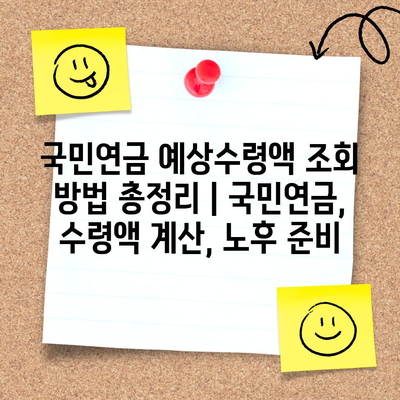 국민연금 예상수령액 조회
방법 총정리 | 국민연금,
수령액 계산, 노후 준비